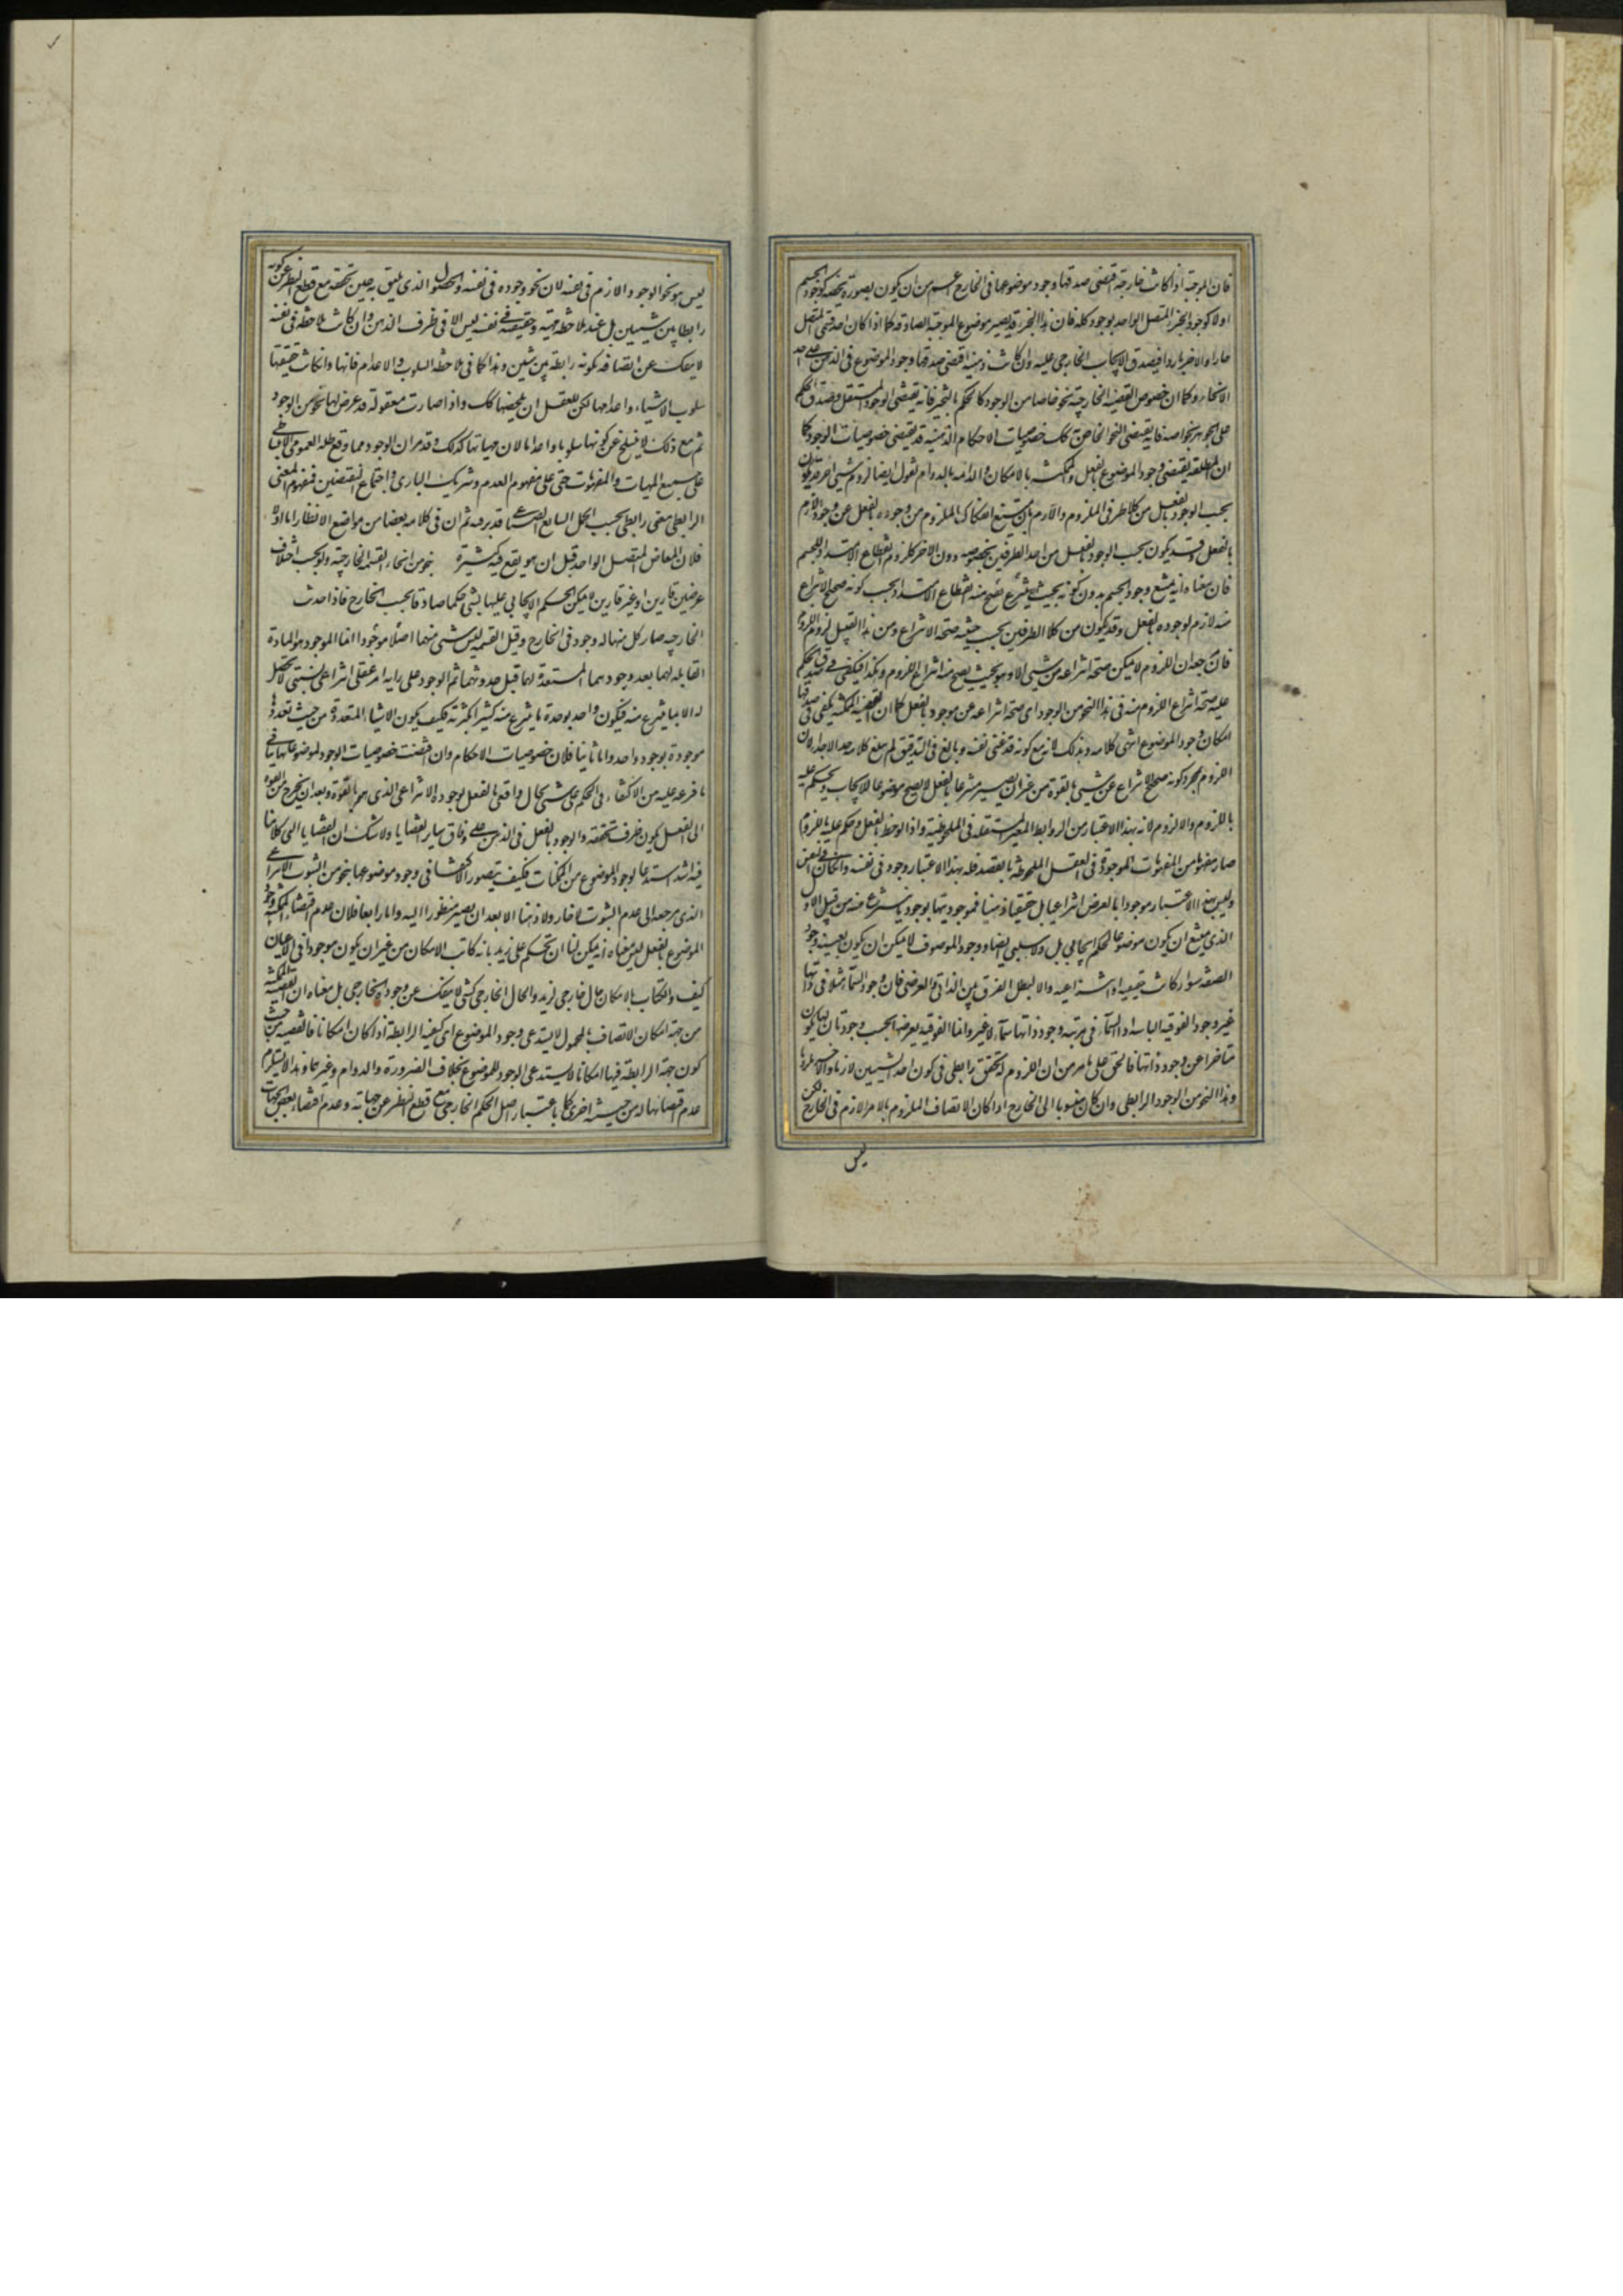 فان الموجبة اذا كانت خارجية اقتضى صدقها وجود موضوعها فى الخارج اعم من ان يكون بصورة تخصه كوجود الجسم
اولا كوجود الجزء المتصل الواحد بوجود كله فان هذا الجزء قد يصير موضوع الموجبة الصادقة كما اذا كان احد قسمى المتصل
حارا والاخر باردا فيصدق الايجاب الخارجى عليه وان كانت ذهنية اقتضى صدقها وجود الموضوع فى الذهن على احد
الانحاء وكما ان خصوص القضية الخارجية نحوا خاصا من الوجود كالحكم بالتحيز فانه يقتضى الوجود المستقل وصدق الحكم
على الجوهر بخواصه فانه يقتضى النحو الخاص به كك خصوصيات الاحكام الذهنية قد يقتضى خصوصيات الوجود كما
ان المطلقة يقتضى وجود الموضوع بالفعل والممكنة بالامكان والدائمة بالدوام نقول ايضا لزوم شيئ اخر قد يكون
بحسب الوجود بالفعل من كلا طرفى الملزوم واللازم بان يمتنع انفكاك الملزوم من وجوده بالفعل عن وجود اللازم
بالفعل وقد يكون بحسب الوجود بالفعل من احد الطرفين بخصوصه دون الاخر كلزوم انقطاع الامتداد للجسم
فان معناه انه يمتنع وجود الجسم بدون كونه بحيث ينتزع منه انقطاع الامتداد بحسب كونه صحيح الانتزاع
منه لازم لوجوده بالفعل وقد يكون من كلا الطرفين بحسب حيثية صحة الانتزاع ومن هذا القبيل لزوم اللزوم
فان مرجعه ان اللزوم لا يمكن صحة انتزاعه من شيئ الا وهو بحيث يصح منه انتزاع اللزوم وهكذا فيكفى فى صدق الحكم
عليه صحة انتزاع اللزوم منه فى هذا النحو من الوجود اى صحة انتزاعه عن موجود بالفعل كما ان القضية الممكنة يكفى فى صدقها
امكان وجود الموضوع انتهى كلامه وذلك لانه مع كونه قد نفى نفسه وبالغ فى التدقيق لم يبلغ كلامه حد الاجداء لان
اللزوم بمجرد كونه صحيح الانتزاع عن شيئ بالقوة من غير ان يصير منتزعا بالفعل لا يصح موضوعا للايجاب ويحكم عليه
باللزوم واللالزوم لانه بهذا الاعتبار من الروابط الغير المستقلة فى الملحوظية واذا لوحظ بالفعل وحكم عليه باللزوم
صار مفهوما من المفهومات الموجودة فى العقل الملحوظة بالقصد فله بهذا الاعتبار وجود فى نفسه وان كان فى النفس
وليس بهذا الاعتبار موجودا بالعرض انتزاعيا بل حقيقيا ذهنيا فموجوديتها بوجود ما ينتزع منه من قبيل الاول
الذى يمتنع ان يكون موضوعا لحكم ايجابى بل ولا سلبى ايضا ووجود الموصوف لا يمكن ان يكون بعينه وجود
الصفة سواء كانت حقيقية او انتزاعية والا لبطل الفرق بين الذاتى والعرضى فان وجود السماء مثلا فى ذاتها
غير وجود الفوقية الثابتة او السماء فى مرتبة وجود ذاتها سماء لا غير وانما الفوقية يعرضها بحسب وجود ثان لها يكون
متاخرا عن وجود ذاتها فالحق على ما مر من ان اللزوم له تحقق رابطى فى كون احد الشيئين لازما والاخر ملزوما
وهذا النحو من الوجود الرابطى وان كان منسوبا الى الخارج اذا كان الاتصاف الملزوم بالامر اللازم فى الخارج لكن
ليس
ليس هو نحو الوجود اللازم فى نفسه لان نحو وجوده فى نفسه والحصول الذى يليق به حين تحققه مع قطع النظر عن كونه
رابطا بين شيئين بل عند ملاحظة مهيته وحقيقته فى نفسه ليس الا فى ظرف الذهن وان كانت ملاحظة فى نفسه
لا ينفك عن اتصافه بكونه رابطة بين شيئين وهذا كما فى ملاحظة السلوب والاعدام فانها وان كانت حقيقتها
سلوب الاشياء واعدامها لكن للعقل ان يحضها كك واذا صارت معقولة قد عرض لها نحو من الوجود
ثم مع ذلك لا ينسلخ عن كونها سلوبا واعداما لان مهياتها كذلك وقد مر ان الوجود مما وقع ظله العمومى الانبساطى
على جميع المهيات والمفهومات حتى على مفهوم العدم وشريك البارى واجتماع النقيضين فمفهوم المعنى
الرابطى معنى رابطى بحسب الحمل الشايع الصناعى قد بر فيه ثم ان فى كلامه بعضا من مواضع الانظار اما اولا
فلان العاض المتصل الواحد قبل ان هو يقع فيه كثيرة بنحو من انحاء القسمة الخارجية ولو بحسب اختلاف
عرضين قارين او غير قارين لا يمكن الحكم الايجابى عليها بشئ حكما صادقا بحسب الخارج فاذا حدث
الخارجيه صار كل منها له وجود فى الخارج وقبل القسمة ليس شئ منهما اصلا موجودا انما الموجود هو المادة
القابلة لهما بعد وجودهما المستعدة لهما قبل حدوثهما ثم الوجود على رايه امر عقلى انتزاعى نسبتى لا تحصل
له الا بما ينتزع منه فيكون واحد بوحدة ما ينتزع منه كثيرا بكثرته فكيف يكون الاشياء المتعددة من حيث تعددها
موجودة بوجود واحد واما ثانيا فلان خصوصيات الاحكام وان اقتضت خصوصيات الوجود لموضوعاتها ينافى
ما فرعه عليه من الاكتفاء فى الحكم على شئ بحال واقعى بالفعل بوجوده الانتزاعى الذى هو بالقوة وبعد ان يخرج من القوة
الى الفعل يكون ظرف تحققه والوجود بالفعل فى الذهن على وفاق ساير القضايا ولا شك ان القضايا التى كلامنا
فيه اشد استدعاء لوجود الموضوع من الممكنات فكيف يتصور الاكتفاء فى وجود موضوعها بنحو من الثبوت الانتزاعى
الذى مرجعه الى عدم الثبوت لا خارجا ولا ذهنا الا بعد ان يصير منظورا اليه واما رابعا فلان عدم اقتضاء الممكنة وجود
الموضوع بالفعل ليس معناه انه يمكن لنا ان نحكم على زيد بانه كاتب بالامكان من غير ان يكون موجودا فى الاعيان
كيف والكتاب بالامكان حال خارجى لزيد والحال الخارجى لشئ لا ينفك عن وجوده الخارجى بل معناه ان القضية الممكنة
من جهة امكان الاتصاف بالمحمول لا يستدعى وجود الموضوع اى كيفية الرابطة اذا كان امكانا فالقضية من حيث
كون جهة الرابطة فيها امكانا لا يستدعى الوجود للموضوع بخلاف الضرورة والدوام وغيرها وهذا لا يستلزم
عدم اقتضائها له من حيثية اخرى كما باعتبار اصل الحكم الخارجى مع قطع النظر عن جهاته وعدم اقتضاء بعض الجهات